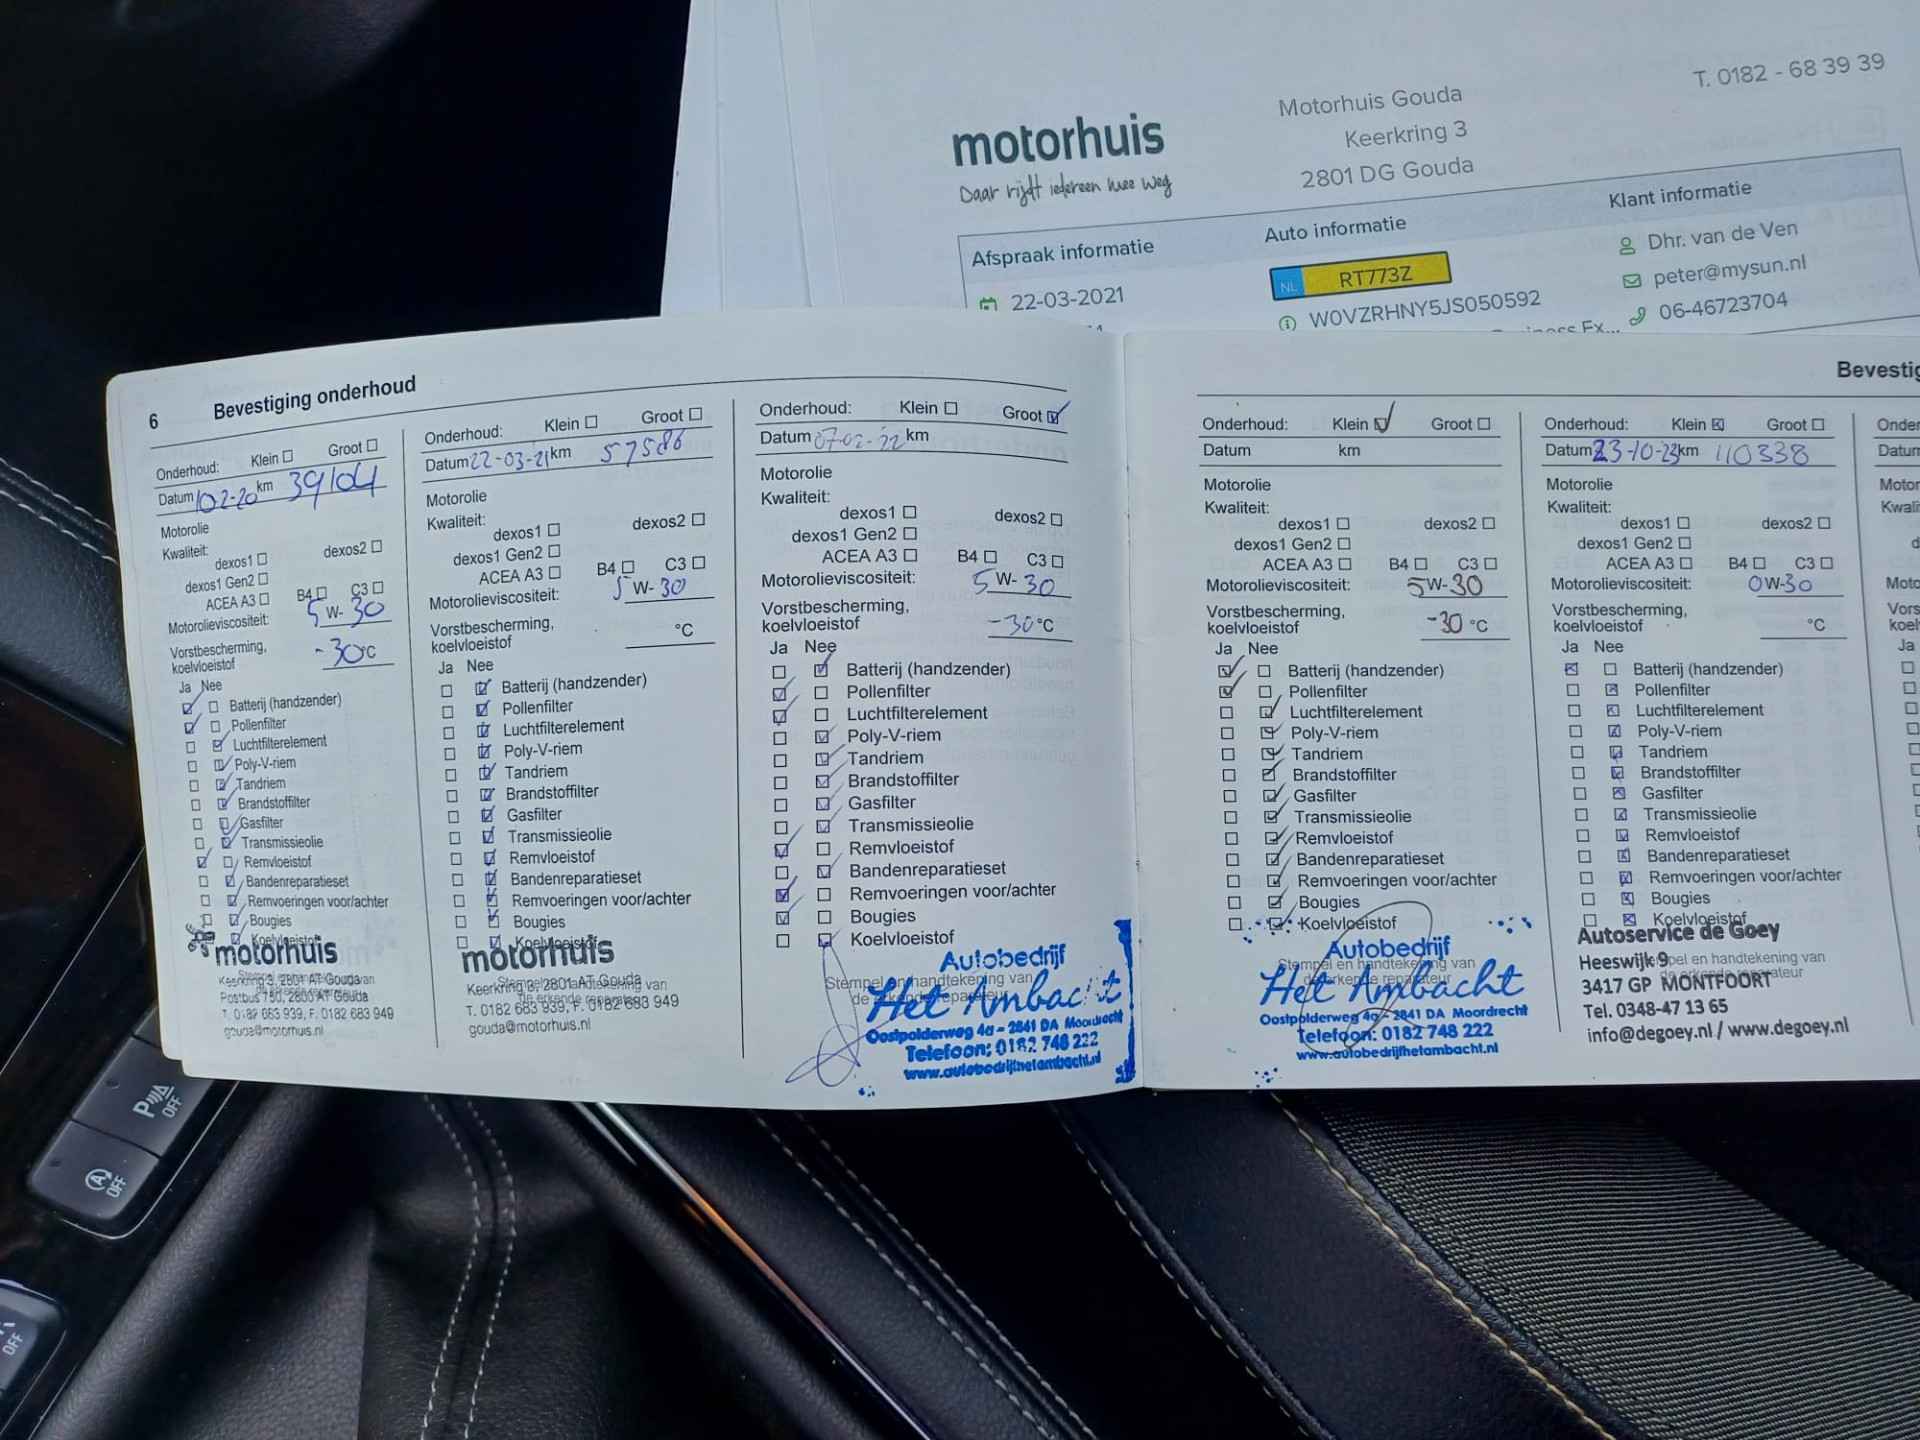 T. 0182 - 68 39 39
motorhuis
Daar rijdt iedereen mee weg
Motorhuis Gouda
Keerkring 3
2801 DG Gouda
Afspraak informatie
Auto informatie
Klant informatie
22-03-2021
NL RT773Z
W0VZRHNY5JS050592
Dhr. van de Ven
peter@mysun.nl
06-46723704
6 Bevestiging onderhoud
Onderhoud: Klein Groot
Datum km 39104
Motorolie
Kwaliteit:
dexos1 dexos2
dexos1 Gen2
ACEA A3 B4 C3
Motorolieviscositeit: 5 W- 30
Vorstbescherming,
koelvloeistof -30 °C
Ja Nee
Batterij (handzender)
Pollenfilter
Luchtfilterelement
Poly-V-riem
Tandriem
Brandstoffilter
Gasfilter
Transmissieolie
Remvloeistof
Bandenreparatieset
Remvoeringen voor/achter
Bougies
Koelvloeistof
motorhuis
Keerkring 3, 2801 AT Gouda
Postbus 150, 2800 AT Gouda
T. 0182 683 939, F. 0182 683 949
gouda@motorhuis.nl
Onderhoud: Klein Groot
Datum 22-03-'21 km 57586
Motorolie
Kwaliteit:
dexos1 dexos2
dexos1 Gen2
ACEA A3 B4 C3
Motorolieviscositeit: 5 W- 30
Vorstbescherming,
koelvloeistof °C
Ja Nee
Batterij (handzender)
Pollenfilter
Luchtfilterelement
Poly-V-riem
Tandriem
Brandstoffilter
Gasfilter
Transmissieolie
Remvloeistof
Bandenreparatieset
Remvoeringen voor/achter
Bougies
Koelvloeistof
motorhuis
Stempel en handtekening van
de erkende reparateur
T. 0182 683 939, F. 0182 683 949
gouda@motorhuis.nl
Onderhoud: Klein Groot
Datum 07-02-'22 km
Motorolie
Kwaliteit:
dexos1 dexos2
dexos1 Gen2
ACEA A3 B4 C3
Motorolieviscositeit: 5 W- 30
Vorstbescherming,
koelvloeistof -30 °C
Ja Nee
Batterij (handzender)
Pollenfilter
Luchtfilterelement
Poly-V-riem
Tandriem
Brandstoffilter
Gasfilter
Transmissieolie
Remvloeistof
Bandenreparatieset
Remvoeringen voor/achter
Bougies
Koelvloeistof
Stempel en handtekening van
de erkende reparateur
Autobedrijf
Het Ambacht
Oostpolderweg 4a - 2841 DA Moordrecht
Telefoon: 0182 748 222
www.autobedrijfhetambacht.nl
Bevestig
Onderhoud: Klein Groot
Datum km
Motorolie
Kwaliteit:
dexos1 dexos2
dexos1 Gen2
ACEA A3 B4 C3
Motorolieviscositeit: 5 W- 30
Vorstbescherming,
koelvloeistof -30 °C
Ja Nee
Batterij (handzender)
Pollenfilter
Luchtfilterelement
Poly-V-riem
Tandriem
Brandstoffilter
Gasfilter
Transmissieolie
Remvloeistof
Bandenreparatieset
Remvoeringen voor/achter
Bougies
Koelvloeistof
Stempel en handtekening van
de erkende reparateur
Autobedrijf
Het Ambacht
Oostpolderweg 4a - 2841 DA Moordrecht
Telefoon: 0182 748 222
www.autobedrijfhetambacht.nl
Onderhoud: Klein Groot
Datum 23-10-23 km 110338
Motorolie
Kwaliteit:
dexos1 dexos2
dexos1 Gen2
ACEA A3 B4 C3
Motorolieviscositeit: 0 W-30
Vorstbescherming,
koelvloeistof °C
Ja Nee
Batterij (handzender)
Pollenfilter
Luchtfilterelement
Poly-V-riem
Tandriem
Brandstoffilter
Gasfilter
Transmissieolie
Remvloeistof
Bandenreparatieset
Remvoeringen voor/achter
Bougies
Koelvloeistof
Stempel en handtekening van
de erkende reparateur
Autoservice de Goey
Heeswijk 9
3417 GP MONTFOORT
Tel. 0348-47 13 65
info@degoey.nl / www.degoey.nl
Onder
Datum
Motor
Kwali
Ja
P OFF
A OFF
OFF